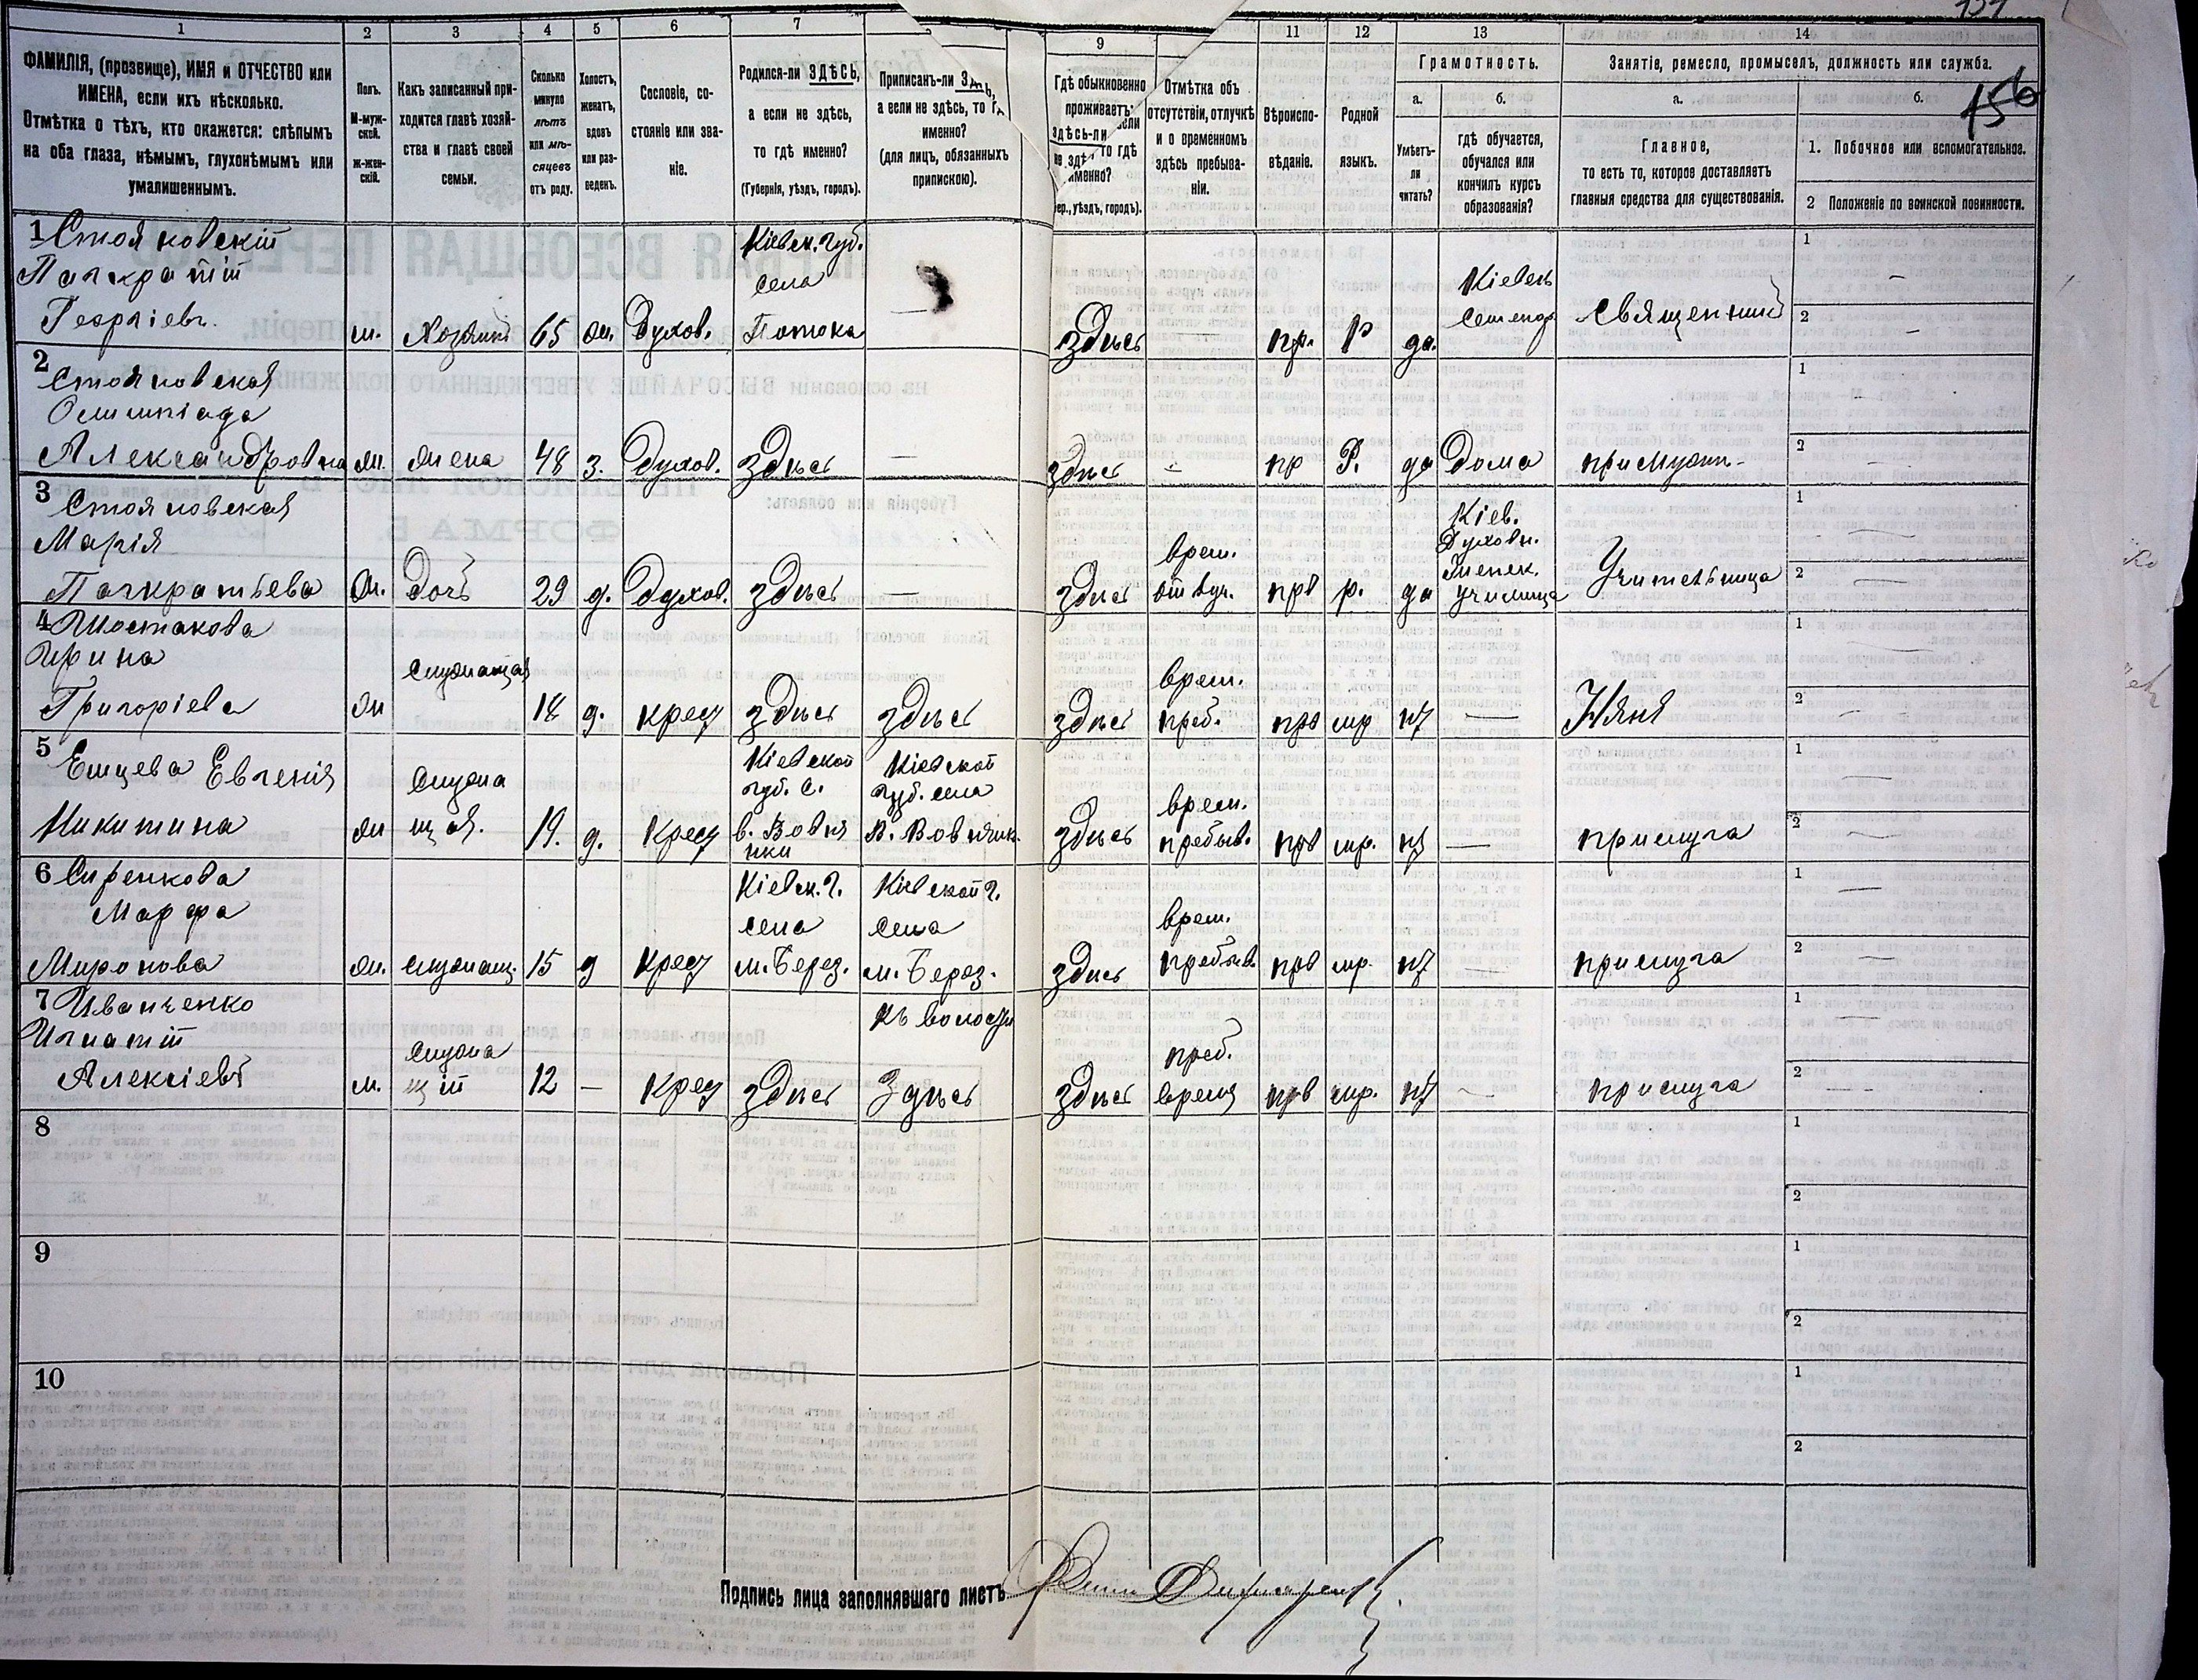 1 2 3 4 5 6 7 9 11 12 13 14
ФАМИЛІЯ, (прозвище), ИМЯ и ОТЧЕСТВО или
ИМЕНА, если ихъ нѣсколько.
Отмѣтка о тѣхъ, кто окажется: слѣпымъ
на оба глаза, нѣмымъ, глухонѣмымъ или
умалишеннымъ.
Полъ.
М-муж-
ской.
ж-жен-
скій.
Какъ записанный при-
ходится главѣ хозяй-
ства и главѣ своей
семьи.
Сколько
минуло
лѣтъ
или мѣ-
сяцевъ
отъ роду.
Холостъ,
женатъ,
вдовъ
или раз-
веденъ.
Сословіе, со-
стояніе или зва-
ніе.
Родился-ли ЗДѢСЬ,
а если не здѣсь,
то гдѣ именно?
(Губернія, уѣздъ, городъ).
Приписанъ-ли
а если не здѣсь, то
именно?
(для лицъ, обязанныхъ
припискою).
Гдѣ обыкновенно
проживаетъ:
здѣсь-ли
то гдѣ
именно?
уѣздъ, городъ).
Отмѣтка объ
отсутствіи, отлучкѣ
и о временномъ
здѣсь пребыва-
ніи.
Вѣроиспо-
вѣданіе.
Родной
языкъ.
Грамотность.
а.
Умѣетъ-
ли
читать?
б.
гдѣ обучается,
обучался или
кончилъ курсъ
образованія?
Занятіе, ремесло, промыселъ, должность или служба.
а.
Главное,
то есть то, которое доставляетъ
главныя средства для существованія.
б.
156
1. Побочное или вспомогательное.
2 Положеніе по воинской повинности.
1 Стояновскій
Панкратій
Георгіевъ. м. Хозяинъ 65 ж. Духов.
Кіевск. губ.
села
Потока —
здѣсь — пр. Р да.
Кіевск
Семенар
Священникъ
1 —
2 —
2 Стояновская
Олимпіада
Александровна ж. жена 48 з. Духов. здѣсь —
здѣсь — пр Р. да дома при мужи-
1 —
2 —
3 Стояновская
Марія
Панкратьева ж. дочь 29 д. Духов. здѣсь —
здѣсь
врем.
отлуч. прв р. да
Кіев.
Духовн.
Женск.
училища
Учительница
1 —
2 —
4 Шостакова
Ирина
Григоріева ж
Служащая
18 д. крест здѣсь здѣсь
здѣсь
врем.
преб. прв мр нѣт — Няня
1 —
2 —
5 Емцева Евгенія
Никитина ж
Служа
щая. 19. д. Крест
Кіевской
губ. с.
в. Вовня
нки
Кіевской
губ. села
В. Вовнянк.
здѣсь
врем.
пребыв. прв мр. нѣт — прислуга
1 —
2 —
6 Сиренкова
Марфа
Миронова ж. служащ. 15 д крест
Кіевск. г.
села
м. Берез.
Кіевской г.
села
м. Берез.
здѣсь
врем.
пребыв. прв мр. нѣт — прислуга
1 —
2 —
7 Иванченко
Игнатій
Алексіевъ м.
служа
щій 12 — Крест здѣсь
Къ волости
Здѣсь
здѣсь
преб.
время прв мр. нѣт — прислуга
1 —
2 —
8 1
2
9 1
2
10 1
2
Подпись лица заполнявшаго листъ